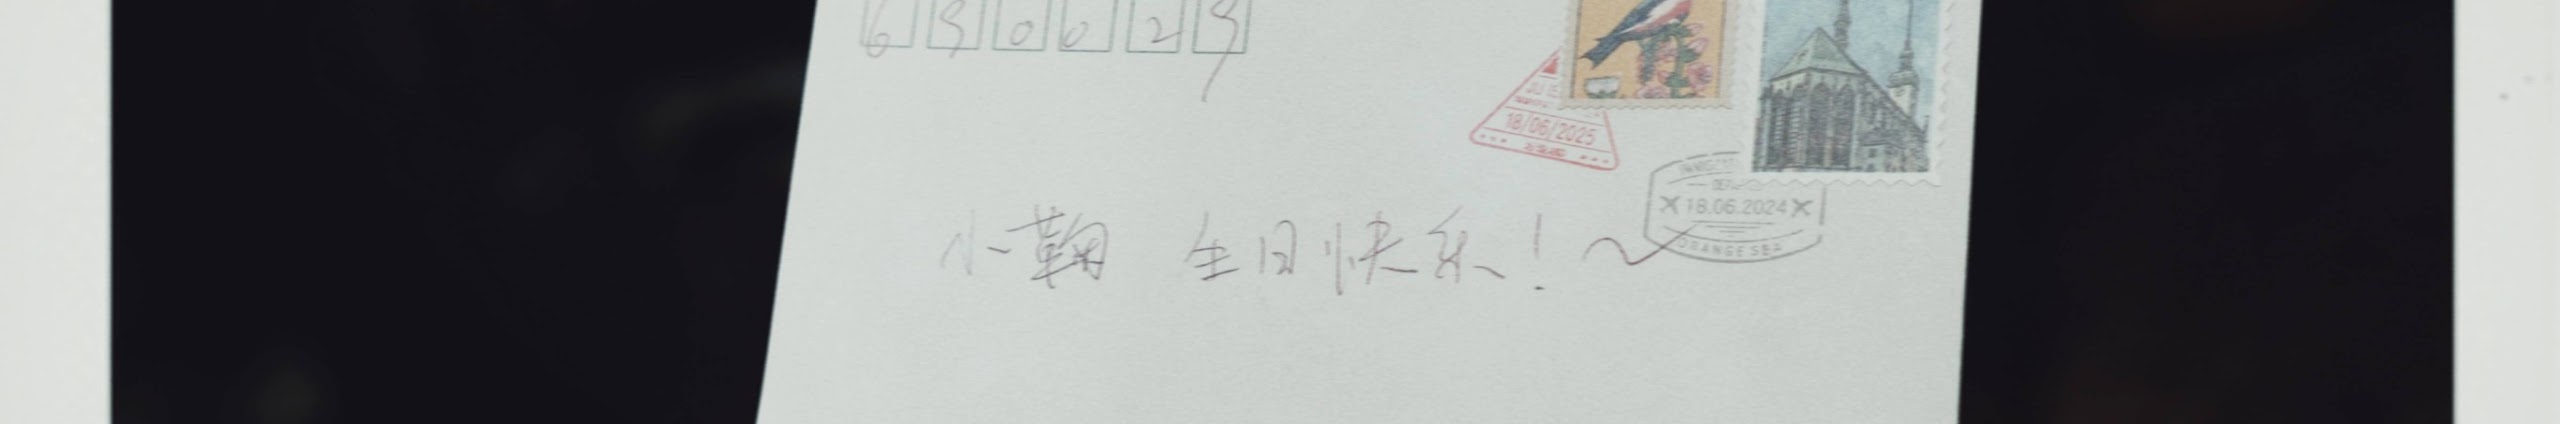 630023
18/06/2025
18.06.2024
ORANGE SEA
小鞠 生日快乐！～